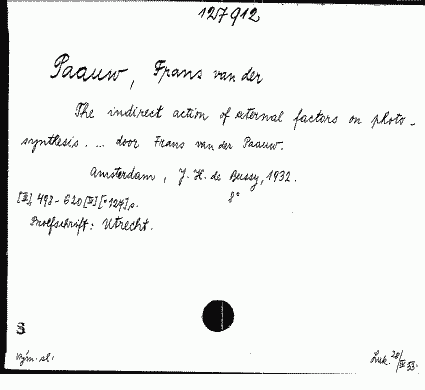 127912
Paauw, Frans van der
The indirect action of external factors on photo-
synthesis. ... door Frans van der Paauw.
Amsterdam, J. H. de Bussy, 1932.
8°
[III], 498-620 [III] [=127] s.
Proefschrift: Utrecht.
S
Luk. 20/IV 53.